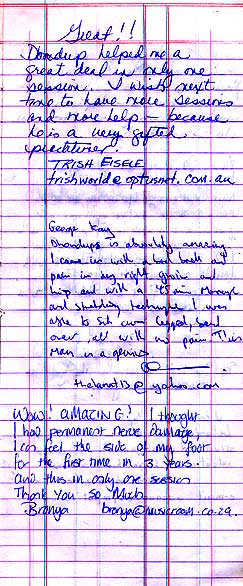 Great!!
Dhondup helped me a
great deal in only one
session. I wish next
time to have more sessions
and more help - because
he is a very gifted
practitioner.
TRISH EISELE
trishworld@optusnet.com.au
George Kay
Dhondups is absolutely amazing
I came in with a bad back and
pain in my right groin and
hip and with a 45 min Massage
and stretching technique I was
able to sit cross legged, bend
over, all with no pain This
Man is a genius
@yahoo.com
Wow! AMAZING! I thought
I had permanent nerve damage,
I can feel the side of my foot
for the first time in 3 years.
And this in only one session
Thank You So Much
Bronya bronya@musicroom.co.za.